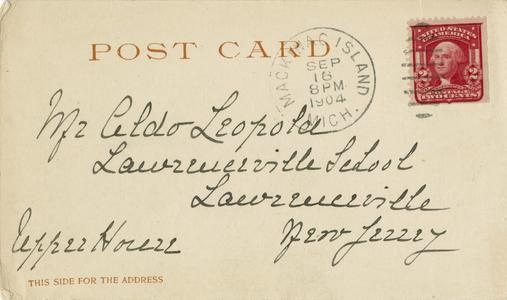 POST CARD
MACKINAC ISLAND
SEP
16
8PM
1904
MICH.
UNITED STATES
OF AMERICA
2 2
POSTAGE
TWO CENTS
Mr Aldo Leopold
Lawrenceville School
Lawrenceville
Upper House New Jersey
THIS SIDE FOR THE ADDRESS